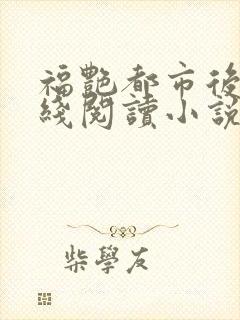 福艷都市後
綫閱讀小說
柴學友